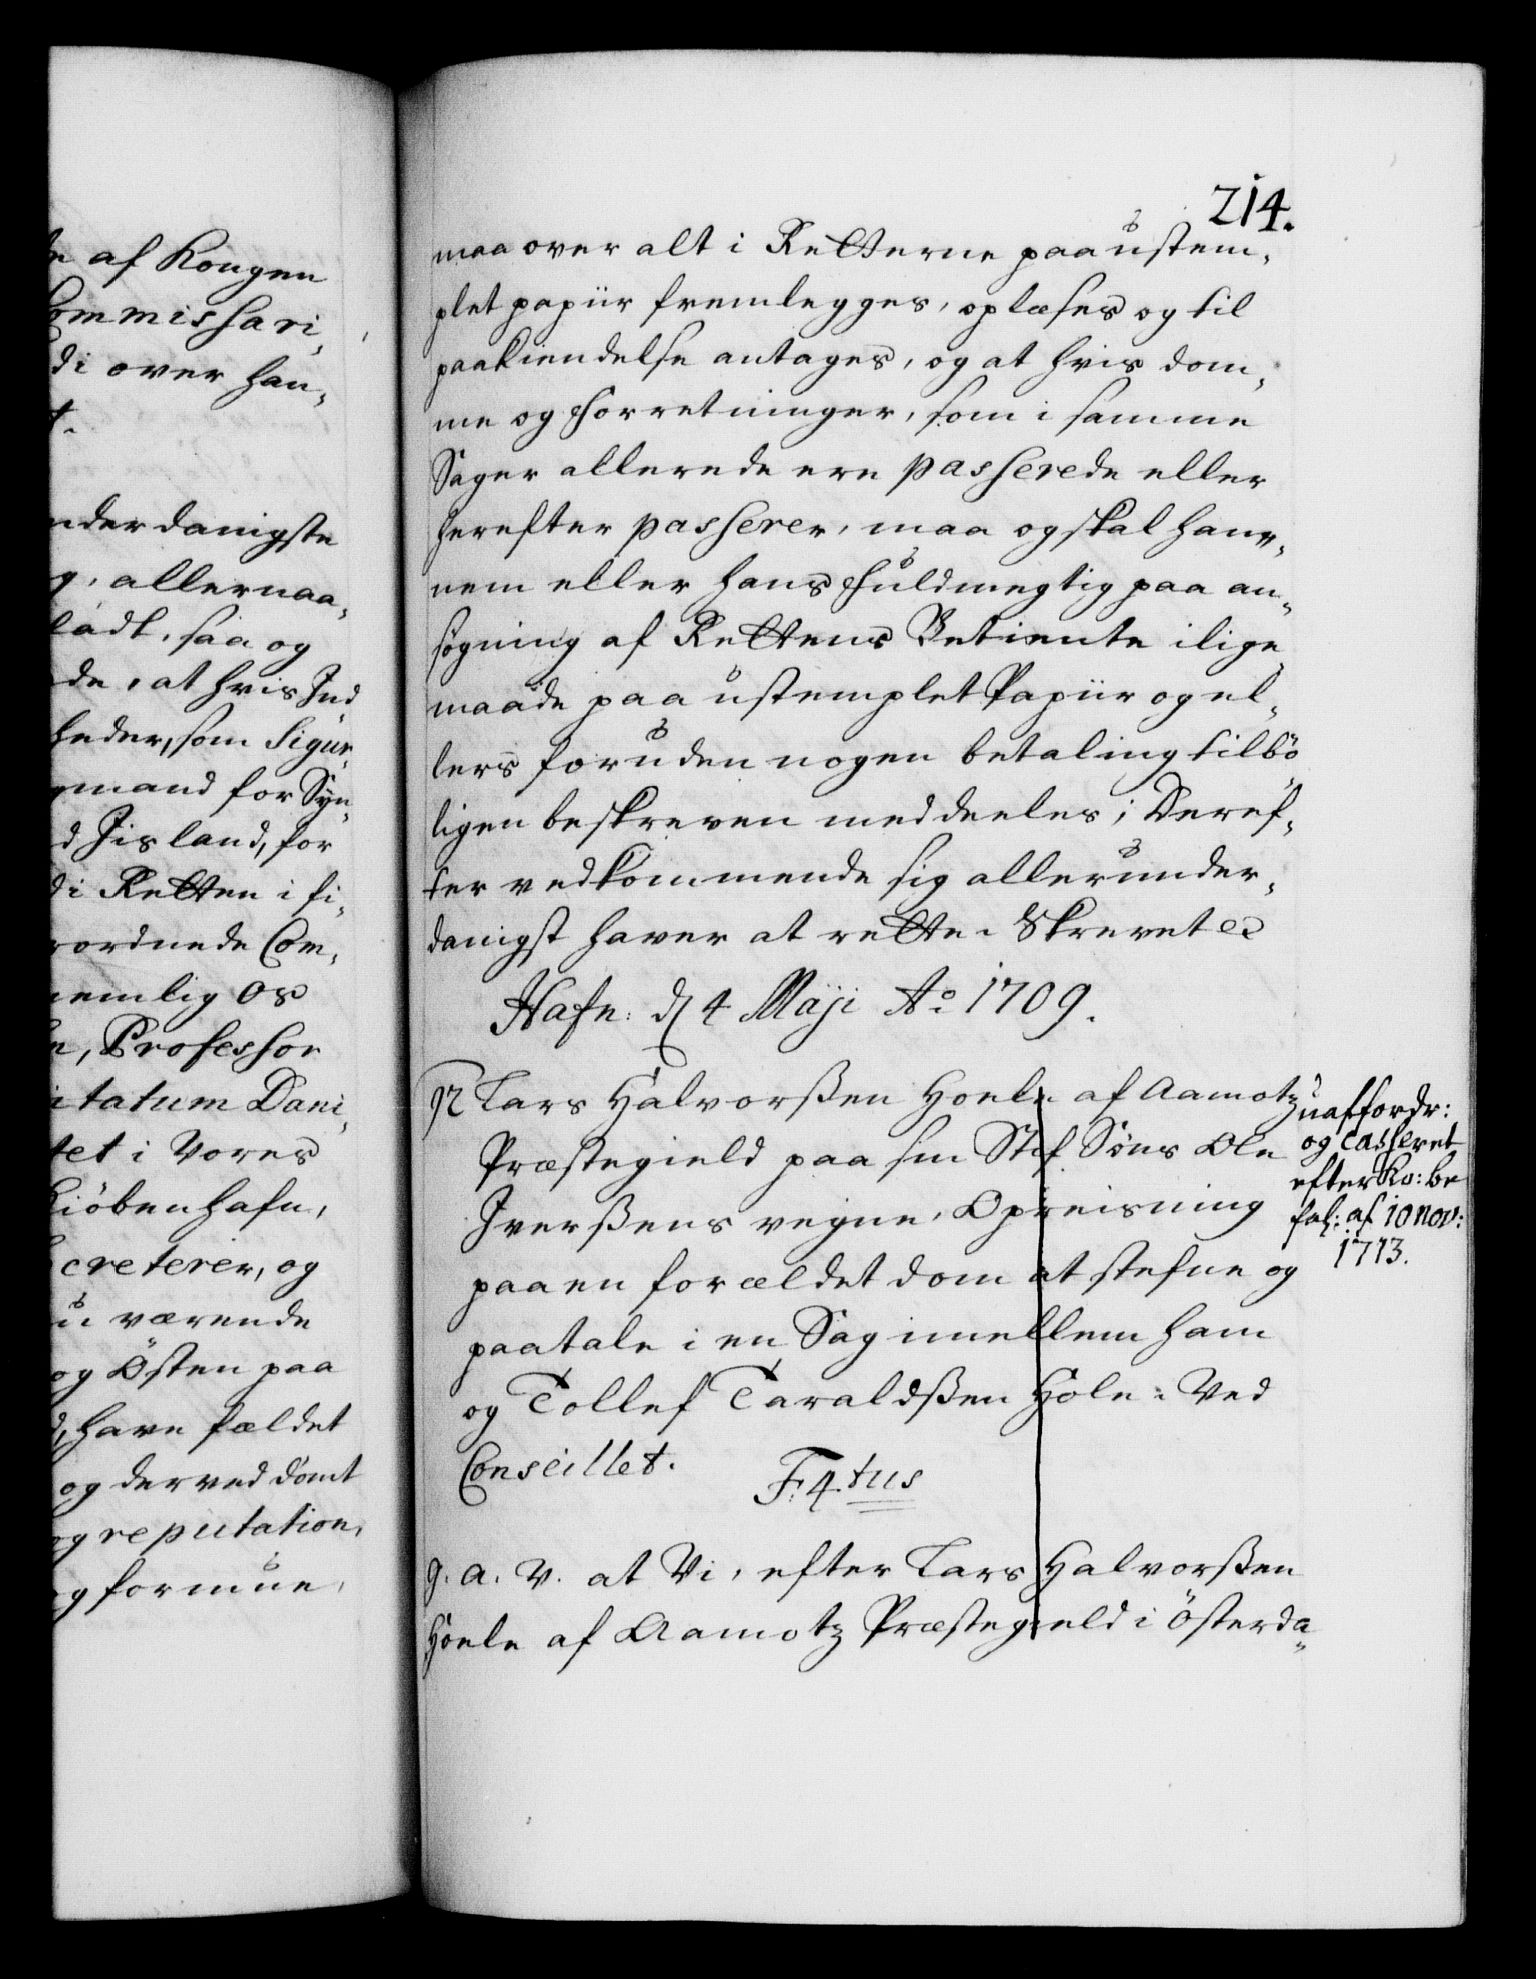 e af Kongen
Commissari,
di over han,
t.
nderdanigste
g, allernaa,
ladt, saa og
de, at hvis Ind
heder, som Sigur,
gmand for Syn,
d Jisland, for
di Retten i fi,
rordnede Com,
nemlig Os
n, Professor
itatum Dani,
tet i Vores
Kiöbenhafn,
ecreterer, og
u værende
og Östen paa
d, have fældet
og derved dömt
og reputation,
og formue,
214.
maa over alt i Retterne paa ustem,
plet papiir fremlegges, oplæses og til
paakiendelse antages, og at hvis dom,
me og forretninger, som i samme
Sager allerede ere passerede eller
herefter passerer, maa og skal hans,
nem eller hans fuldmegtig paa an,
sögning af Rettens Betiente i lige
maade paa ustemplet Papiir og el,
lers foruden nogen betaling tilbö
ligen beskreven meddeeles; Deref,
ter vedkommende sig allerunder,
danigst haver at rette. Skrevet &c
Hafn: d 4 Maji Ao 1709.
Lars Halvorßen Hoele af Aamotz
Præstegield paa sin Stif Söns Ole
Iverßens vegne, Opreisning
paa en forældet dom at stefne og
paatale i en Sag imellem ham
og Tollef Taraldßen Hole. Ved
Conseillet.
F. 4.tus
g. a. V. at Vi, efter Lars Halvorßen
Hoele af Aamotz Præstegield i Österda,
uaffordr:
og casseret
efter Ko: be
fal: af 10 nov:
1713.